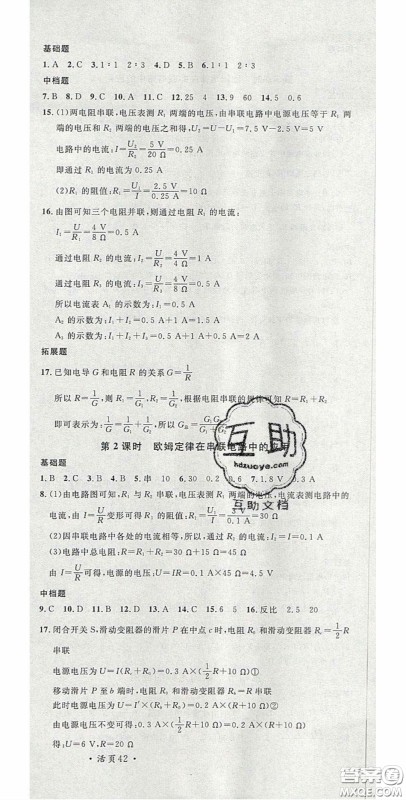 基础题
1. A 2. C 3. 1∶1 2∶3 4. D 5. B 6. 1∶1 2∶3
中档题
7. B 8. D 9. C 10. A 11. C 12. 25 4 13. 9 60 14. 5 0.6
15. (1)两电阻串联,电压表测R₁两端的电压,由串联电路中电源电压等于R₁两
端的电压和R₂两端的电压之和得:U₂=U-U₁=7.5 V-2.5 V=5 V
电路中的电流:I=U₂/R₂=5 V/20 Ω=0.25 A
即通过R₁的电流为0.25 A
(2)R₁的阻值:R₁=U₁/I=2.5 V/0.25 A=10 Ω
16. 由图可知三个电阻并联,则通过电阻R₁的电流:
I₁=U/R₁=4 V/8 Ω=0.5 A
通过电阻R₂的电流:I₂=U/R₂=4 V/4 Ω=1 A
通过电阻R₃的电流:I₃=U/R₃=4 V/8 Ω=0.5 A
所以电流表A₁的示数为:I₁+I₂+I₃=0.5 A+1 A+0.5 A=2 A
A₂的示数为:I₂+I₃=1 A+0.5 A=1.5 A
拓展题
17. 已知电导G和电阻R的关系G=1/R
所以R=1/G,则R₁=1/G₁,R₂=1/G₂,根据电阻串联的规律可知
所以1/G=1/G₁+1/G₂,即G=G₁G₂/(G₁+G₂)
第2课时 欧姆定律在串联电路中的应用
基础题
1. B 2. C 3. B 4. A 5. 串 10 6. 30 0.2 7. 1.8 V
8. (1)由电路图可知,两电阻串联,电压表测R₁两端电压,电流表测电路中的电
流,由I=U/R变形可得R₁=U₁/I=3 V/0.1 A=30 Ω
(2)因串联电路中各处的电流相等,所以,通过R₂的电流为0.1 A
(3)电路中总电阻:R=R₁+R₂=30 Ω+15 Ω=45 Ω
由I=U/R可得,电源的电压为:U=IR=0.1 A×45 Ω=4.5 V
中档题
9. C 10. D 11. A 12. C 13. C 14. A 15. 6 5 16. 反比 2.5 20
17. 闭合开关S,滑动变阻器的滑片P在中点c时,电阻R₀和滑动变阻器Rc=1/2R
串联
电源电压为U=I(Rc+R₀)=0.3 A×(1/2R+10 Ω)①
移动滑片P至b端时,电阻R₀和滑动变阻器R串联
此时电源电压为U=I′×(R+R₀)=0.2 A×(R+10 Ω)②
由电源电压不变可得:0.3 A×(1/2R+10 Ω)=0.2 A×(R+10 Ω)
得:U=6 V,R=20 Ω
活页42
互助
hdzuoye.com
互助文档
答案圈
MXQE.COM